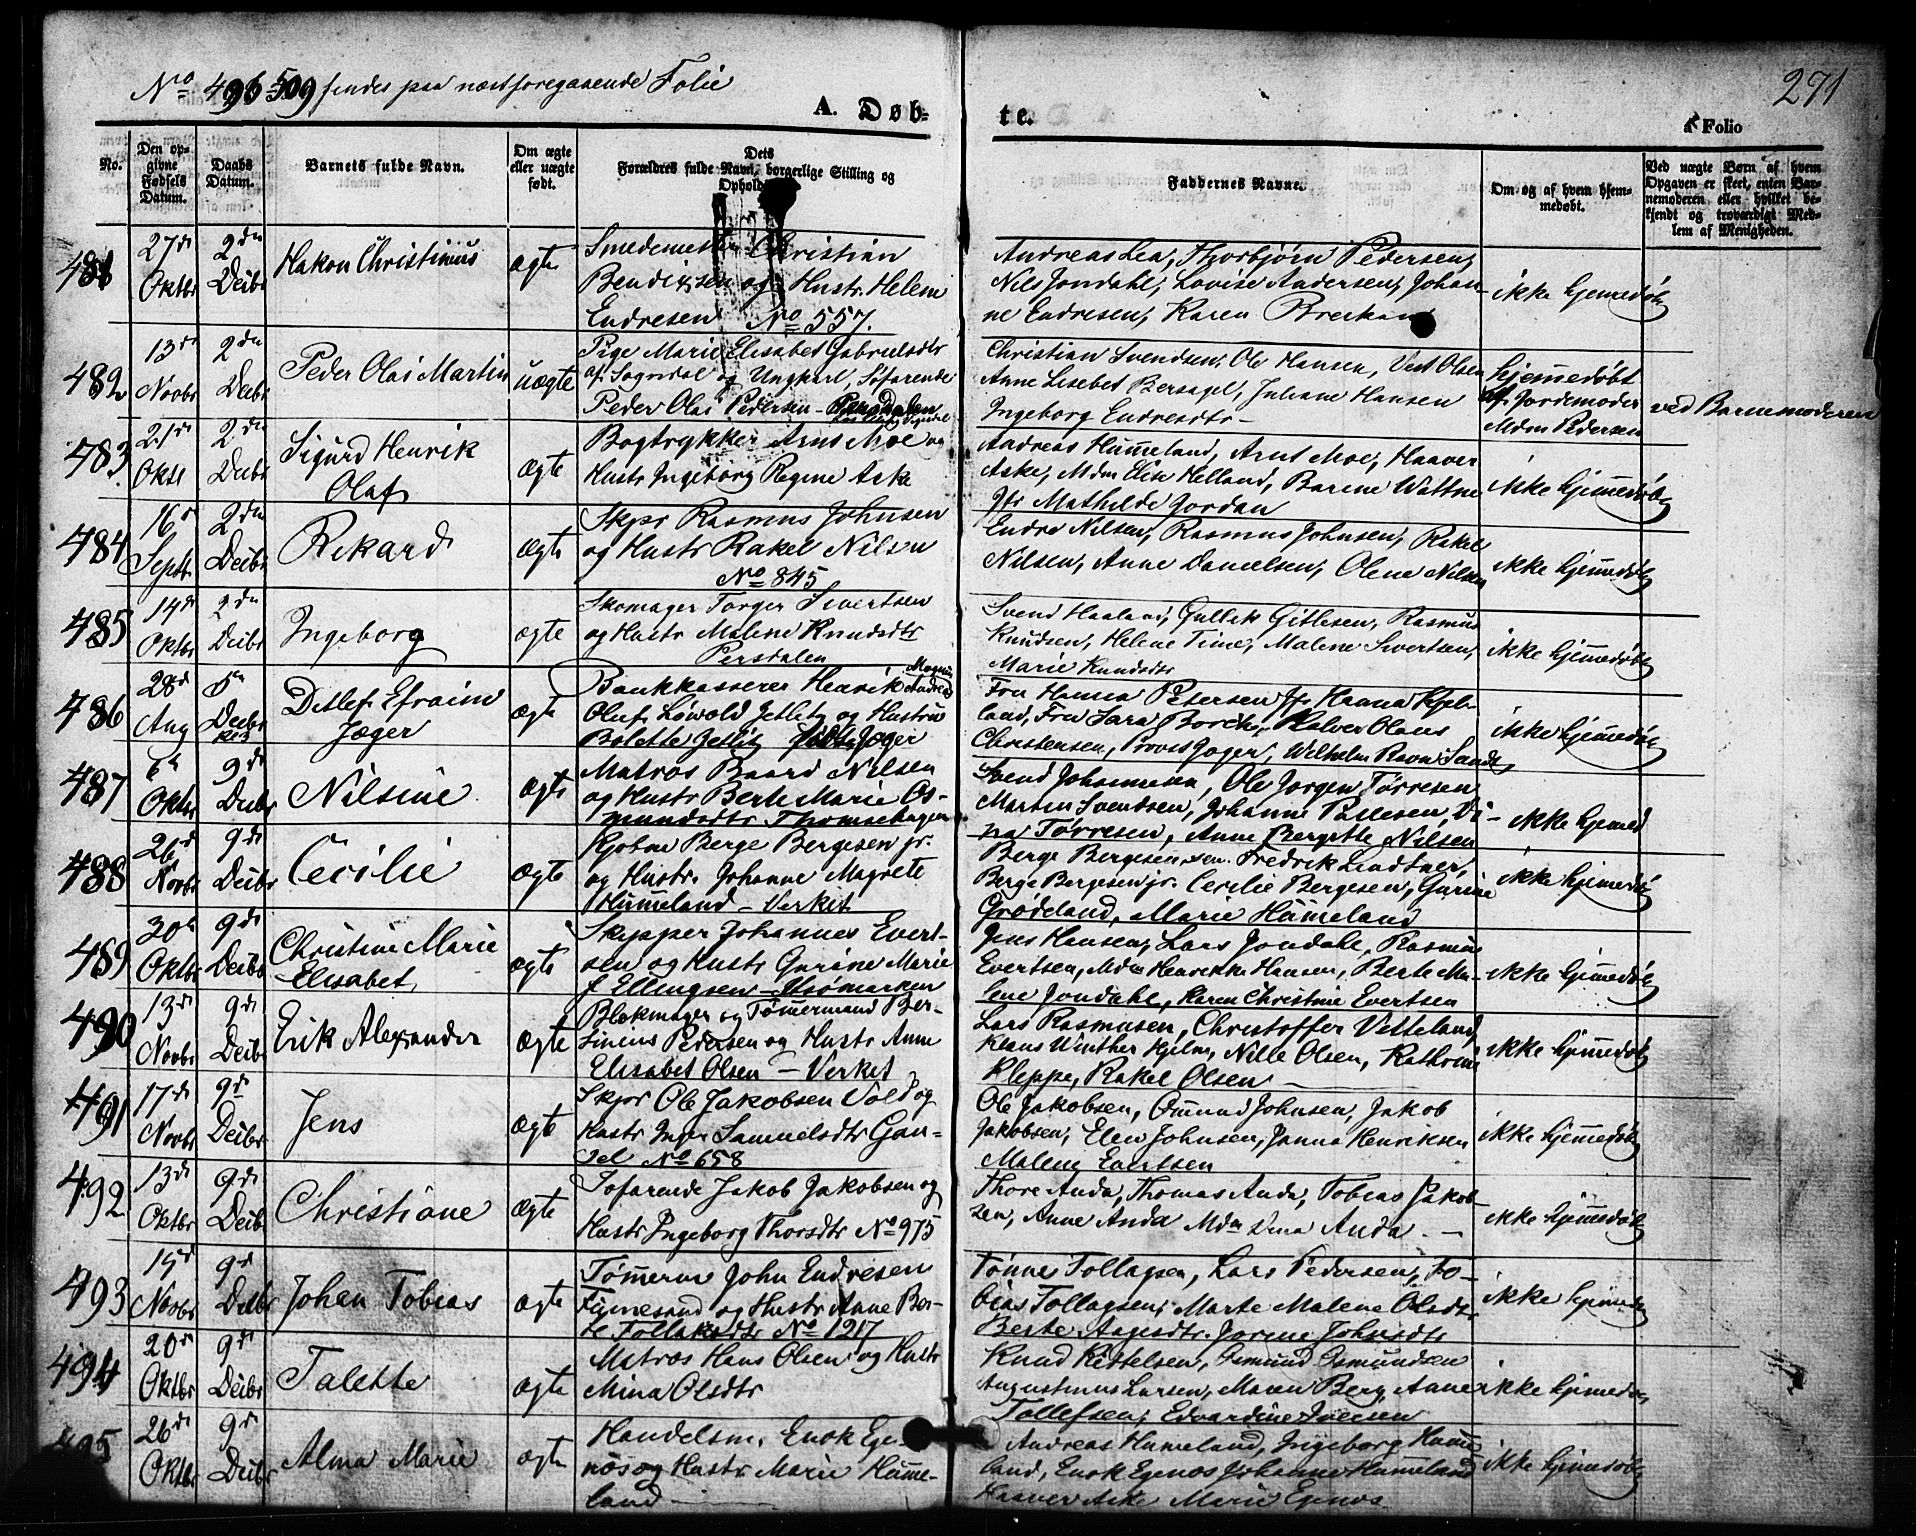 No 496-509 findes paa næstforegaaende Folie
271
A. Døb-
te.
a Folio
No.
Den op-
givne
Fødsels
Datum.
Daabs
Datum.
Barnets fulde Navn.
Om ægte
eller uægte
født.
Dets
Forældres fulde Navn, borgerlige Stilling og
Faddernes Navne.
Om og af hvem hjem-
medøbt.
Ved uægte Børn af hvem
Opgaven er skeet, enten Bar-
nemoderen eller hvilket be-
kjendt og troværdigt Med-
lem af Menigheden.
481
27de
Oktbr
2den
Decbr
Hakon Christinus
ægte
Smedemester Christian
Bendixsen og Hustr. Helene
Endresen No 557.
Andreas Lea, Thorbjørn Pedersen,
Nils Jondahl, Lovise Andersen, Johan-
ne Endresen, Karen
ikke hjemedøbt
482
13de
Novbr
2den
Decbr
Peder Olai Martin
uægte
Pige Marie Elisabet Gabrielsdtr
af Sogndal og Ungkarl, Søfarende
Peder Olai Pedersen
Christian Svendsen, Ole Hansen, Olsen
Anne Lisebet Bersagel, Juliane Hansen
Ingeborg Endresdtr
hjemedøbt
af Jordemoder
Mdm Pedersen
ved Barnemoderen
483
Oktr
2den
Decbr
Sigurd Henrik
Olaf
ægte
Bogtrykker Arnt Moe og
Hustr Ingeborg Regine Aske
Andreas Humeland, Arnt Moe, Haaver
Aske, Mdm Elise Helland, Barine Wattne
Jfr Mathilde Jordan
ikke hjemedøbt
484
16de
Septbr
2den
Decbr
Rikard
ægte
Skpr Rasmus Johnsen
og Hustr Rakel Nilsen
No 845
Endre Nilsen, Rasmus Johnsen, Rakel
Nilsen, Anne Danielsen, Olene Nilsen
ikke hjemedøbt
485
14de
Oktbr
2den
Decbr
Ingeborg
ægte
Skomager Torger Sivertsen
og Hustr Malene Knudsdtr
Persdalen
Svend Haaland, Gullik Gitlesen, Rasmus
Knudsen, Helene Time, Malene Sivertsen,
Marie Knudsdtr
ikke hjemedøbt
486
28de
Aug
5te
Decbr
Ditlef Efraim
Jæger
ægte
Bankkasserer Henrik Magnus Andreas
Oluf Løwold Zetlitz og Hustru
Bolette Zetlitz født Jæger
Fru Hanna Petersen Jfr Hanna Kjel-
land, Fru Sara Halvor Olaus
Christensen, Provst Jæger, Wilhelm Ravn Sandt
ikke hjemedøbt
487
6te
Oktbr
9de
Decbr
Nilsine
ægte
Matros Baard Nilsen
og Hustr Berte Marie Os-
mundsdtr Thomsehagen
Svend Johannesen, Ole Jørgen Tørresen
Martin Svendsen, Johanne Paulesen, Di-
na Tørresen, Anne Bergitte Nilsen
ikke hjemed
488
26de
Novbr
9de
Decbr
Cecilie
ægte
Kjøbm Berge Bergesen jr.
og Hustr. Johanne Magrete
Humeland - Verket
Berge Bergesen sen. Fredrik Lindtner,
Berge Bergesen jr. Cecilie Bergesen, Gurine
Grødeland, Marie Humeland
ikke hjemedøbt
489
30te
Oktbr
9de
Decbr
Christine Marie
Elisabet
ægte
Skipper Johannes Evert-
sen og Hustr Gurine Marie
f Ellingsen - Strømarken
Jens Hansen, Lars Jondahl, Rasmus
Evertsen, Mdm Henrikke Hansen, Berte Ma-
lene Jondahl, Karen Christine Evertsen
ikke hjemedøbt
490
13de
Novbr
9de
Decbr
Erik Alexander
ægte
Blokmager og Tømermand Ber-
Pedersen og Hustr Anne
Elisabet Olsen - Verket
Lars Rasmusen, Christoffer Vetteland,
Klaus Winther Hjelm, Nille Olsen, Kathrine
Kleppe, Rakel Olsen
ikke hjemedøbt
491
17de
Novbr
9de
Decbr
Jens
ægte
Skpr Ole Jakobsen Vold og
Hustr Inger Samuelsdtr Gau-
sel No 658
Ole Jakobsen, Omund Johnsen, Jakob
Jakobsen, Elen Johnsen, Janna Henriksen
Malene Evertsen
ikke hjemedøbt
492
13de
Oktbr
9de
Decbr
Christiane
ægte
Søfarende Jakob Jakobsen og
Hustr Ingeborg Thorsdtr No 975
Thore Anda, Thomas Anda, Tobias Jakob-
sen, Anne Anda Mdm Dina Anda.
ikke hjemedøbt
493
15de
Novbr
9de
Decbr
Johan Tobias
ægte
Tømerm John Endresen
Fumesand og Hustr Anne Ber-
te Tollaksdtr No 1217
Tønne Tollagsen, Lars Pedersen, To-
bias Tollagsen, Marte Malene Olsdtr
Berte Aagesdtr. Jorine Johnsdtr
ikke hjemedøbt
494
20de
Oktbr
9de
Decbr
Talette
ægte
Matros Hans Olsen og Hustr
Mina Olsdtr
Knud Kittelsen, Osmund Osmundsen
Augustinus Larsen, Maren Berg, Anne
Tollefsen, Edvardine Iversen
ikke hjemedø
495
26de
Oktbr
9de
Decbr
Alma Marie
ægte
Handelsm. Enok Ege-
nøs og Hustr Marie Hume-
land
Andreas Humeland, Ingeborg Hume-
land, Enok Egenøs Johanne Humeland
Haaver Aske Marie Egenøs
ikke hjemedøbt